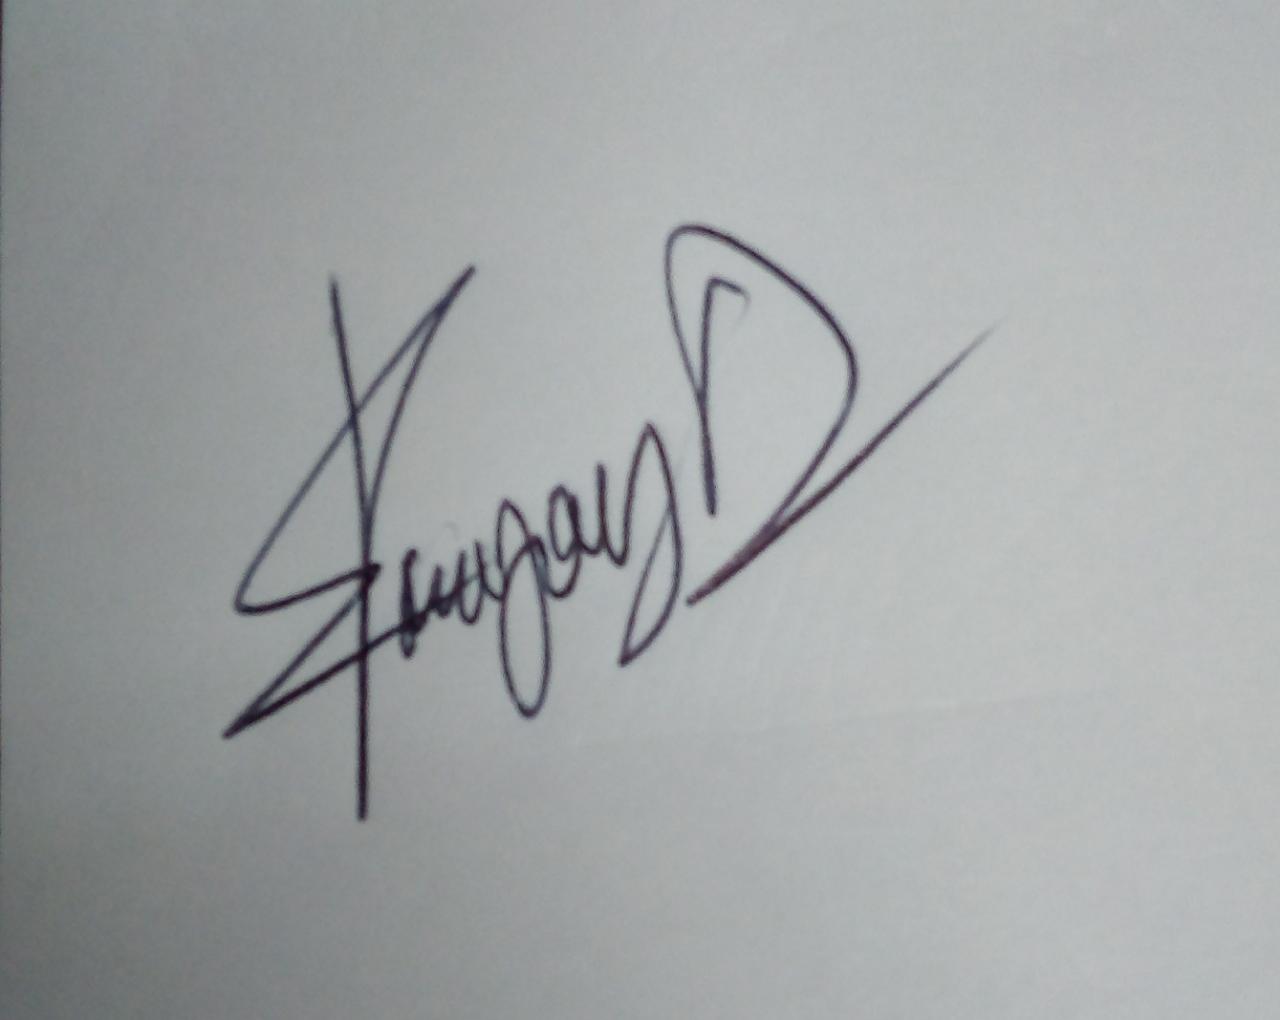 Sanjay D